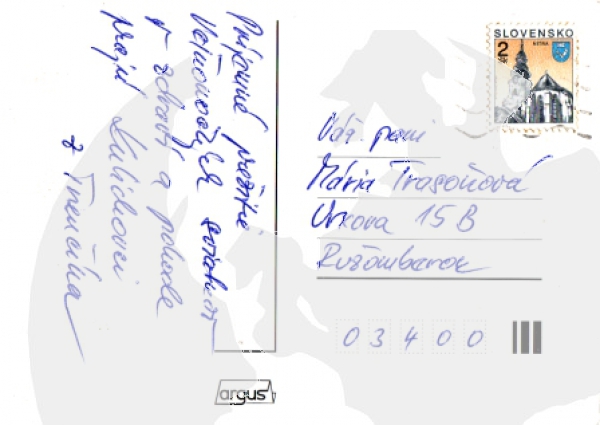 Príjemné prežitie
Veľkonočných sviatkov
v zdraví a pohode
prajú Kulichovci
z Trenčína
SLOVENSKO
2 Sk
NITRA
Váž. pani
Mária Trasoňová
15 B
Ružomberok
03400
argus